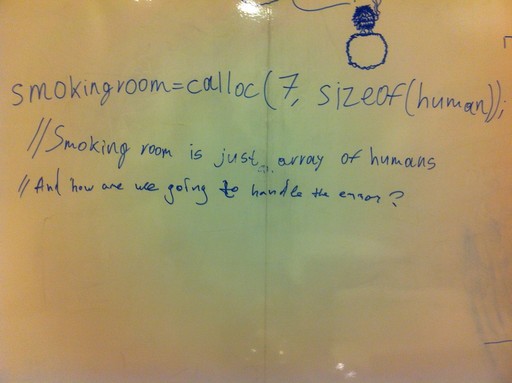 smokingroom=calloc(7, sizeof(human));
//Smoking room is just array of humans
//And how are we going to handle the error?